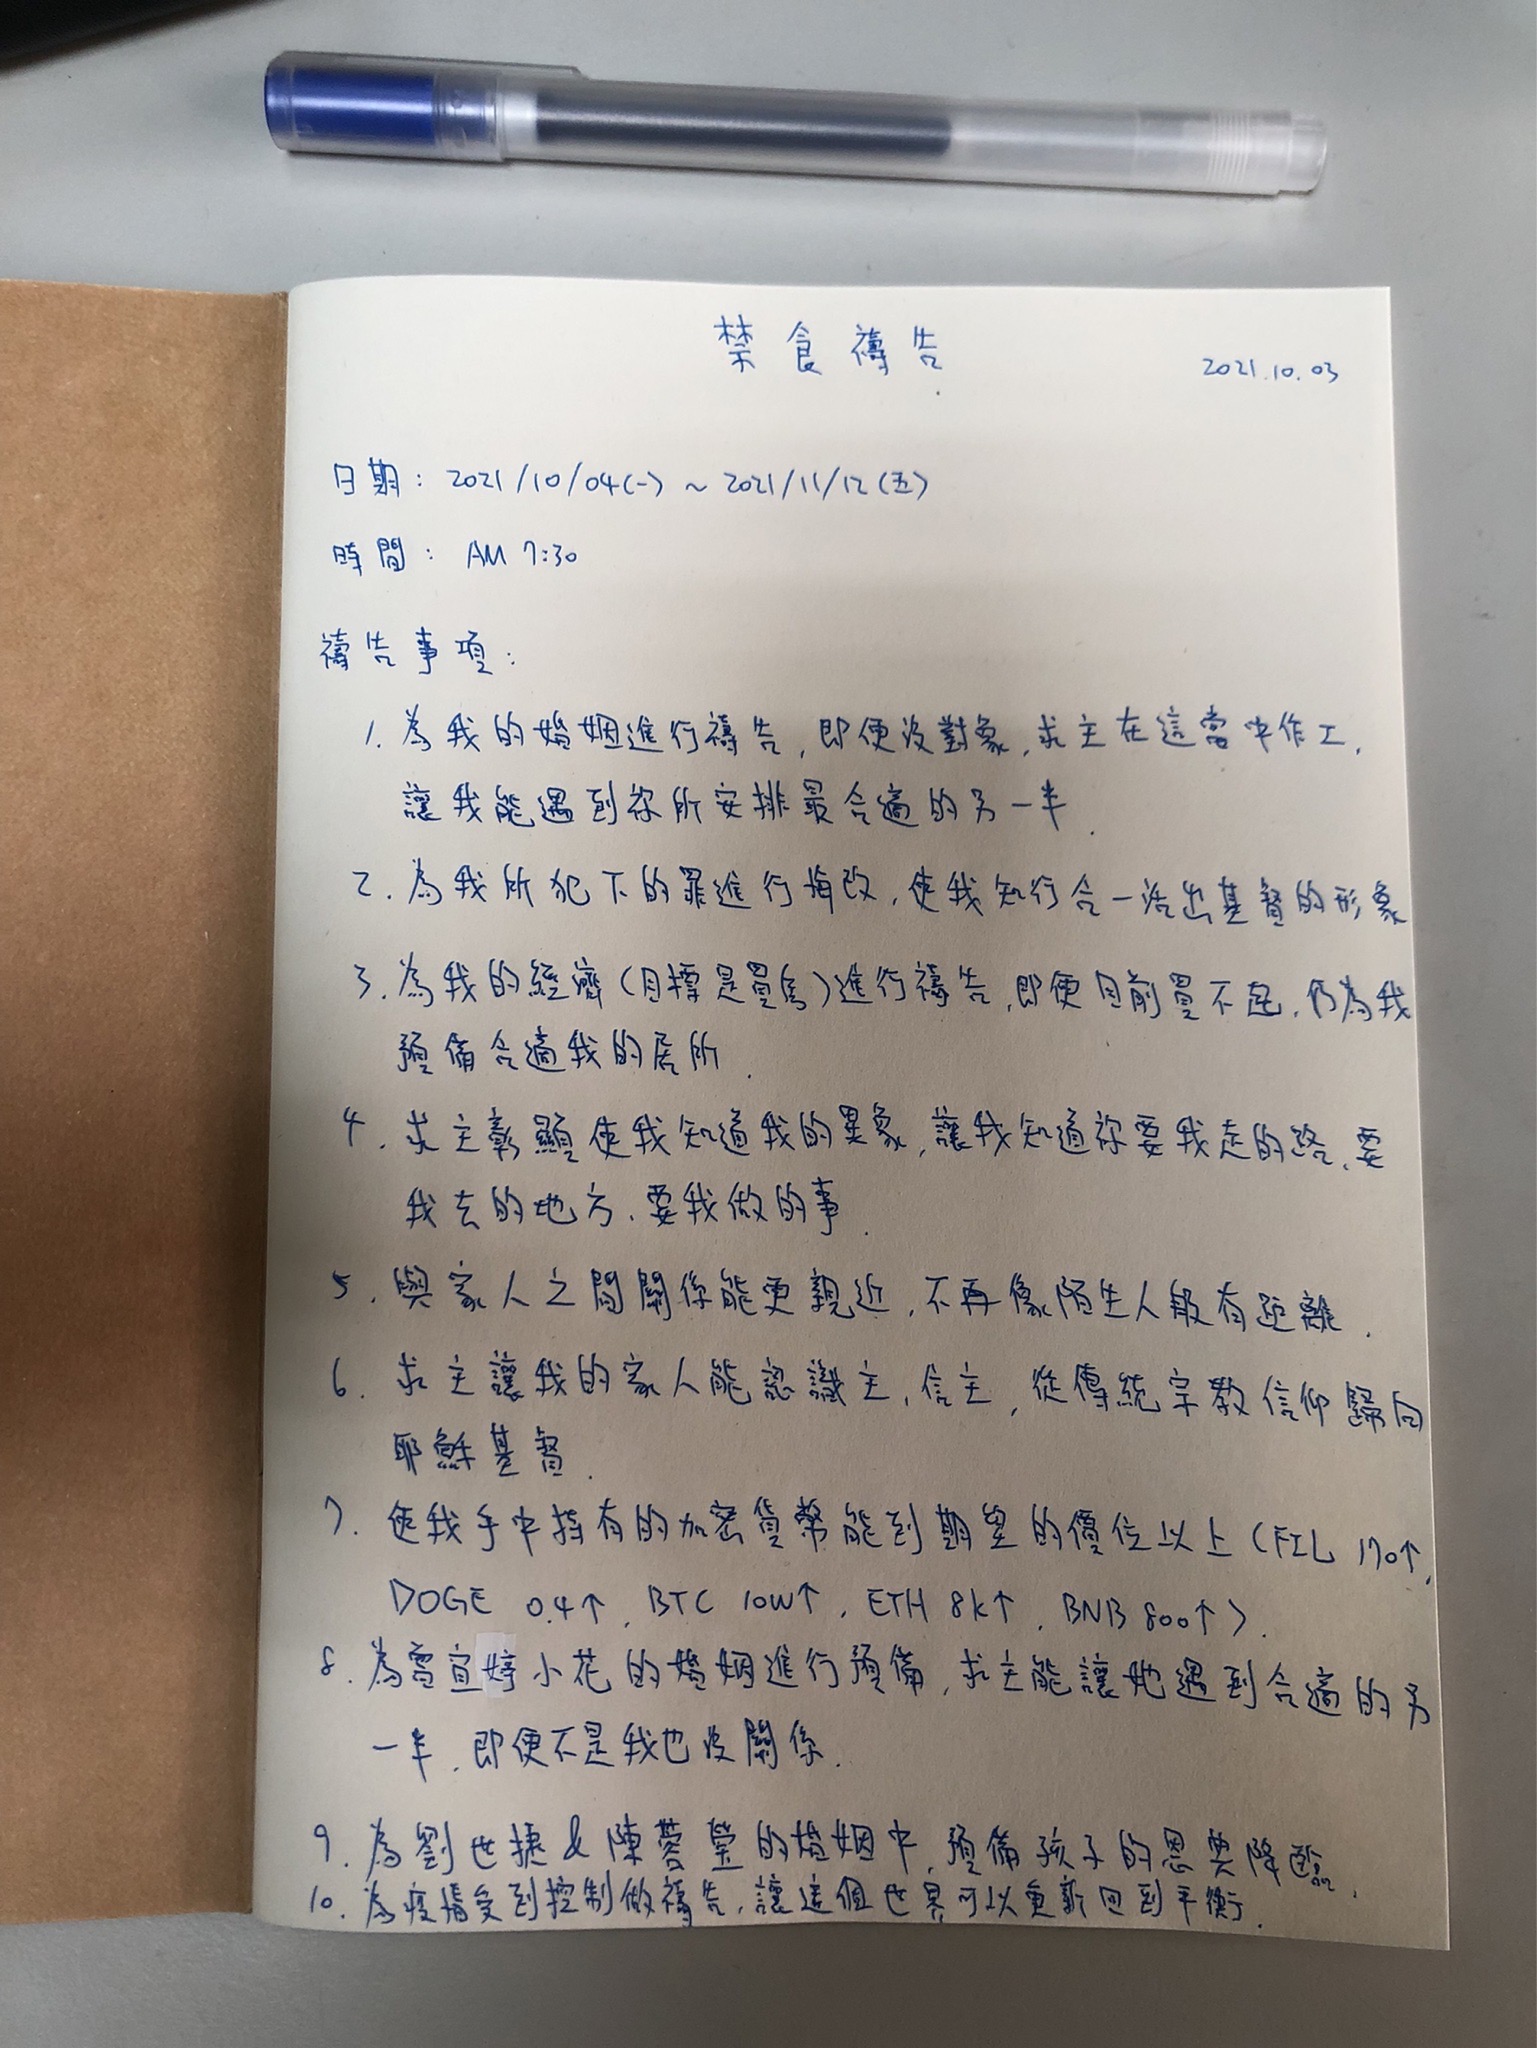 禁食禱告
2021.10.03
日期：2021/10/04(一) ~ 2021/11/12(五)
時間：AM 7:30
禱告事項：
1. 為我的婚姻進行禱告，即便沒對象，求主在這當中作工，
讓我能遇到祢所安排最合適的另一半.
2. 為我所犯下的罪進行悔改，使我知行合一活出基督的形象
3. 為我的經濟(目標是買房)進行禱告，即便目前買不起，仍為我
預備合適我的居所.
4. 求主彰顯使我知道我的異象，讓我知道祢要我走的路、要
我去的地方、要我做的事.
5. 與家人之間關係能更親近，不再像陌生人般有距離.
6. 求主讓我的家人能認識主，信主，從傳統宗教信仰歸向
耶穌基督.
7. 使我手中持有的加密貨幣能到期望的價位以上(FIL 170↑,
DOGE 0.4↑, BTC 10W↑, ETH 8K↑, BNB 800↑).
8. 為雷宜婷小花的婚姻進行預備，求主能讓她遇到合適的另
一半，即便不是我也沒關係.
9. 為劉世捷&陳蓉瑩的婚姻中，預備孩子的恩典降臨.
10. 為疫情受到控制做禱告，讓這個世界可以更新回到平衡.